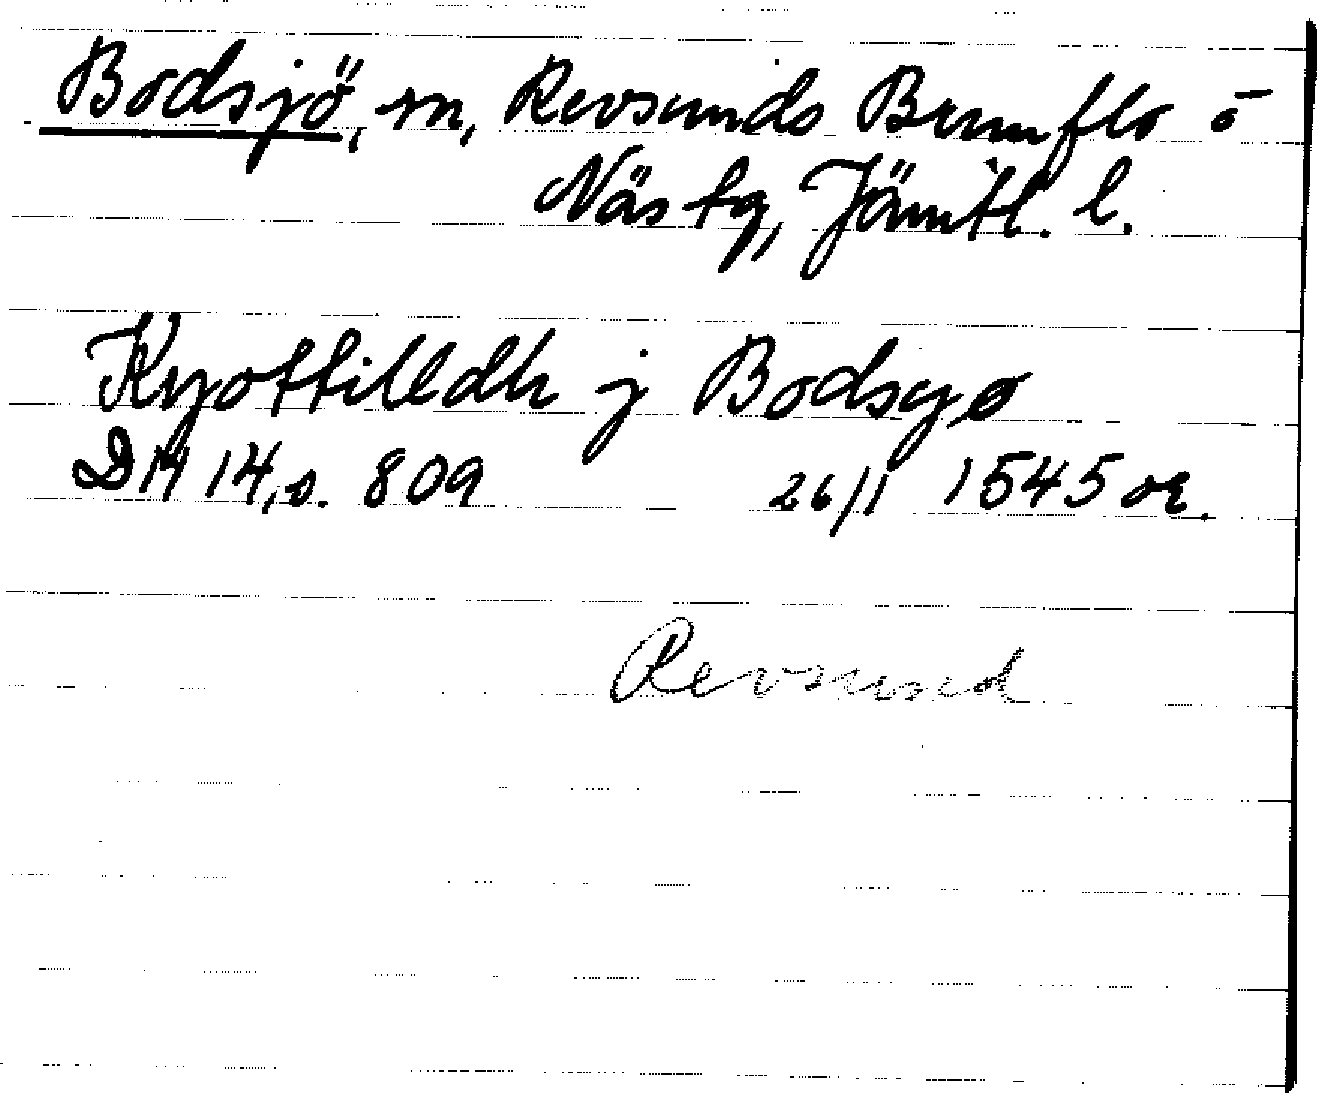 Bodsjö, sn, Revsunds Brunflo o
Näs tg, Jämtl. l.
Kyottilldh j Bodsyo
DN 14, s. 809 26/1 1545 or.
Revsund